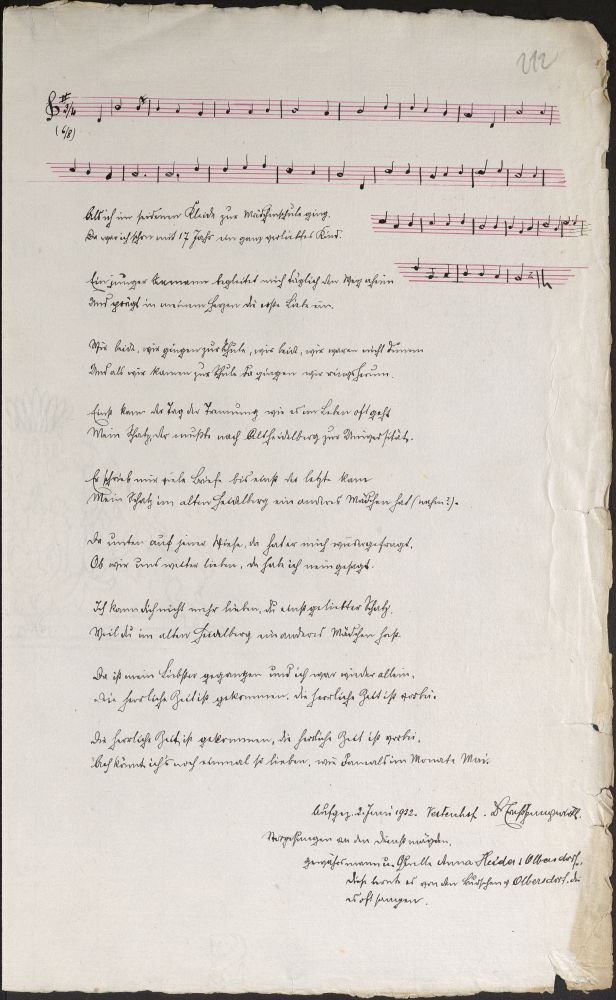 212
3/4
(6/8)
Als ich im seidenen Kleide zur Mädchenschule ging.
Da war ich schon mit 17 Jahr ein ganz verliebtes Kind.
Ein junger Seemann begleitet mich täglich den Weg
Und prägt in meinem Herzen die erste Liebe ein.
Wir beide, wir gingen zur Schule, wir beid, wir waren nicht dumm
Und als wir kamen zur Schule da gingen wir ringsherum.
Einst kam der Tag der Trennung wie es im Leben oft geht
Mein Schatz, der mußte nach Altheidelberg zur Universität.
Er schrieb mir viele Briefe bis einst der letzte kam
Mein Schatz im alten Heidelberg ein anderes Mädchen hat (nahm?).
Da unten auf jener Wiese, da hat er mich gefragt.
Ob wir uns weiter lieben, da hab ich nein gesagt.
Ich kann dich nicht mehr lieben, du einst geliebter Schatz.
Weil du im alten Heidelberg ein anderes Mädchen hast.
Da ist mein Liebster gegangen und ich war wieder allein.
Die herrliche Zeit ist gekommen, die herrliche Zeit ist vorbei.
Die herrliche Zeit ist gekommen, die herrliche Zeit ist vorbei.
Ach könnt ich's noch einmal so lieben, wie damals im Monate Mai.
Aufgez. 2. Juni 1922.
Vorgesungen von den Dienstmägden.
Gewährsmann u. Quelle Anna Heider, Olbersdorf.
Diese lernte es von den Burschen Olbersdorf, die
es oft sangen.